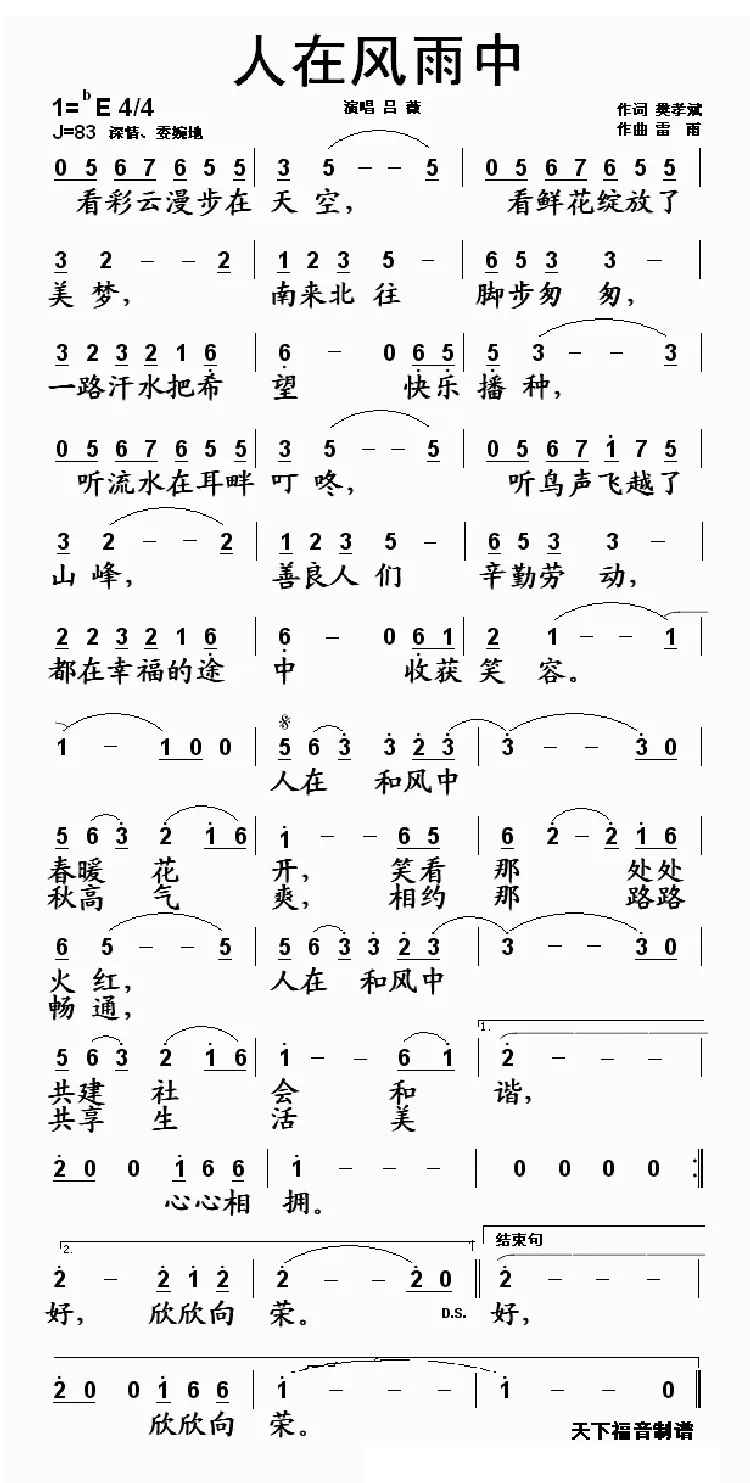 人在风雨中
1=ᵇE 4/4
演唱 吕 薇
作词 樊孝斌
J=83 深情、委婉地
作曲 雷 雨
0 5 6 7 6 5 5 | 3 5 - - 5 | 0 5 6 7 6 5 5 |
看彩云漫步在 天 空, 看鲜花绽放了
3 2 - - 2 | 1 2 3 5 - | 6 5 3 3 - |
美 梦, 南来北 往 脚步匆 匆,
3 2 3 2 1 6 | 6 - 0 6 5 | 5 3 - - 3 |
一路汗水把希 望 快乐 播 种,
0 5 6 7 6 5 5 | 3 5 - - 5 | 0 5 6 7 1 7 5 |
听流水在耳畔 叮 咚, 听鸟声飞越了
3 2 - - 2 | 1 2 3 5 - | 6 5 3 3 - |
山 峰, 善良人 们 辛勤劳 动,
2 2 3 2 1 6 | 6 - 0 6 1 | 2 1 - - 1 |
都在幸福的途 中 收获 笑 容。
1 - 1 0 0 | 5 6 3 3 2 3 | 3 - - 3 0 |
人在 和风中
5 6 3 2 1 6 | 1 - - 6 5 | 6 2 - 2 1 6 |
春暖 花 开, 笑看 那 处处
秋高 气 爽, 相约 那 路路
6 5 - - 5 | 5 6 3 3 2 3 | 3 - - 3 0 |
火 红, 人在 和风中
畅 通,
1.
5 6 3 2 1 6 | 1 - - 6 1 | 2 - - - |
共建 社 会 和 谐,
共享 生 活 美
2 0 0 1 6 6 | 1 - - - | 0 0 0 0 :||
心心相 拥。
2. 结束句
2 - 2 1 2 | 2 - - 2 0 || 2 - - - |
好, 欣欣向 荣。 D.S. 好,
2 0 0 1 6 6 | 1 - - - | 1 - - 0 ||
欣欣向 荣。
天下福音制谱